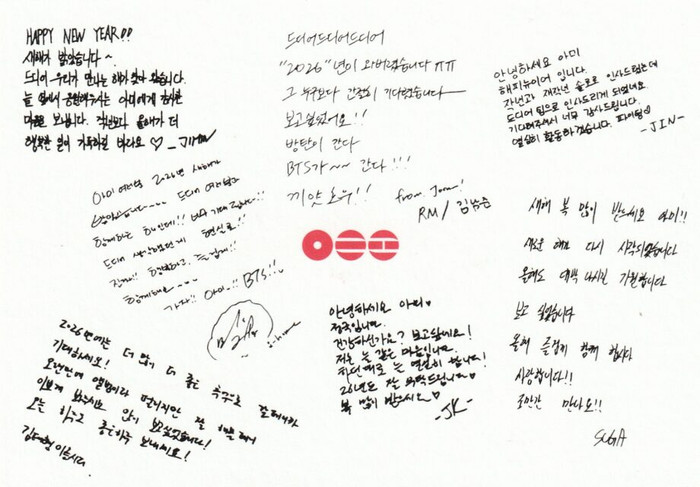 HAPPY NEW YEAR!!
새해가 밝았습니다~
드디어 우리가 만나는 해가 왔습니다.
늘 옆에서 응원해주시는 아미에게 감사한
마음을 보냅니다. 작년보다 올해가 더
행복한 일이 가득하길 바라요 ♡ -JIMIN
드디어드디어드디어
"2026"년이 와버렸습니다 ㅠㅠ
그 누구보다 간절히 기다렸습니다
보고싶었어요!!
방탄이 간다
BTS가 ~~ 간다!!!
끼얏호우!!
from Joon!
RM / 김남준
안녕하세요 아미
해피뉴이어 입니다.
작년과 재작년 솔로로 인사드렸는데
드디어 팀으로 인사드리게 되었네요
기다려주셔서 너무 감사드립니다.
열심히 활동하겠습니다. 파이팅♡
-JIN-
아미 여러분 2026년 새해가
밝았습니다~~~ 드디어 여러분과
함께하는 해인데!! 너무 기대됩니다!!
드디어 생각했던게 현실로!!
진짜!! 행복하고, 즐겁게!!
함께해요~~~
가자!! 아미!! BTS!!
새해 복 많이 받으세요 아미!!
새로운 해가 다시 시작되었습니다
올해도 대박 나시길 기원합니다
보고 싶었습니다
올해 즐겁게 함께 합시다
사랑합니다!!
조만간 만나요!!
SUGA
안녕하세요 아미♡
정국입니다.
건강하신가요? 보고싶네요!
저는 늘 같은 마음입니다.
최선을 다해 열심히 합니다!
26년도 잘 부탁드립니다♡
복 많이 받으세요♡
-JK-
2026년에는 더 많이 더 좋은 추억으로
기대하세요!
오랜만에 앨범이라 떨리지만 잘
이쁘게 봐주시고 많이 보고싶었습니다!
오늘 하루도 좋은하루 보내세요!
김태형 이올시다.